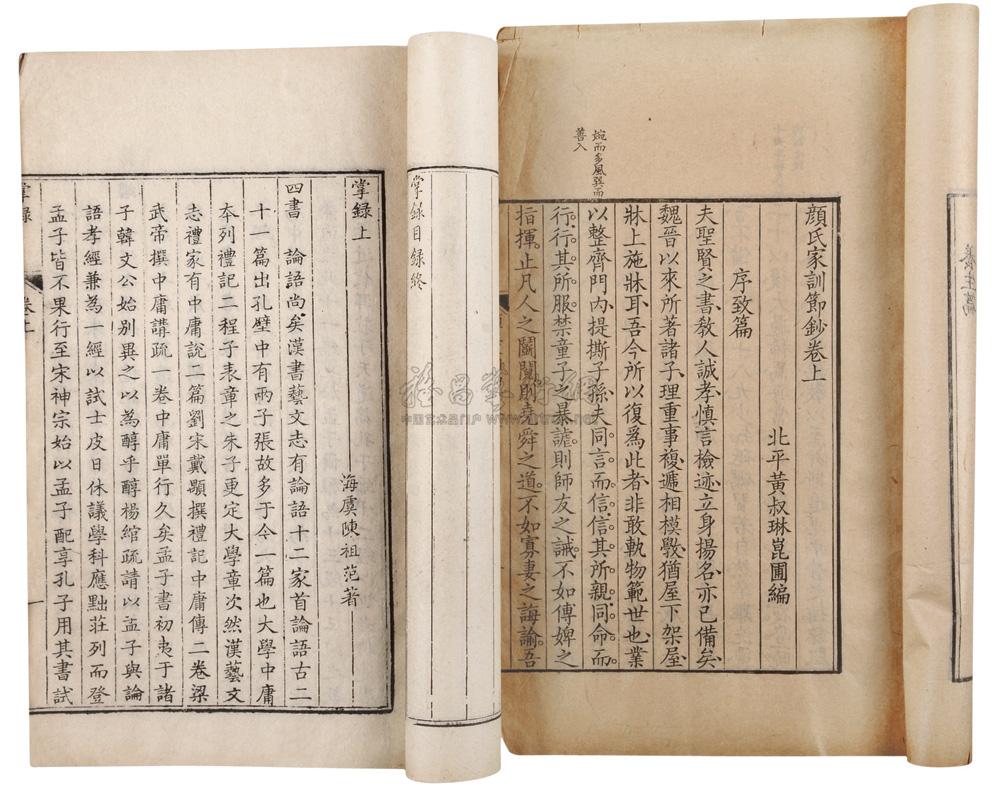 顏氏家訓節鈔卷上
北平黃叔琳崑圃編
序致篇
夫聖賢之書教人誠孝慎言檢迹立身揚名亦已備矣
魏晉以來所著諸子理重事複遞相模斆猶屋下架屋
牀上施牀耳吾今所以復爲此者非敢軌物範世也業
以整齊門內提撕子孫夫同言而信信其所親同命而
行行其所服禁童子之暴謔則師友之誡不如傅婢之
指揮止凡人之鬬鬩則堯舜之道不如寡妻之誨諭吾
婉而多風巽而
善入
養生篇
掌録目録終
掌録上
海虞陳祖范著
四書 論語尚矣漢書藝文志有論語十二家首論語古二
十一篇出孔壁中有兩子張故多于今一篇也大學中庸
本列禮記二程子表章之朱子更定大學章次然漢藝文
志禮家有中庸說二篇劉宋戴顒撰禮記中庸傳二卷梁
武帝撰中庸講疏一卷中庸單行久矣孟子書初夷于諸
子韓文公始別異之以為醇乎醇楊綰疏請以孟子與論
語孝經兼為一經以試士皮日休議學科應黜莊列而登
孟子皆不果行至宋神宗始以孟子配享孔子用其書試
掌録
卷上
一